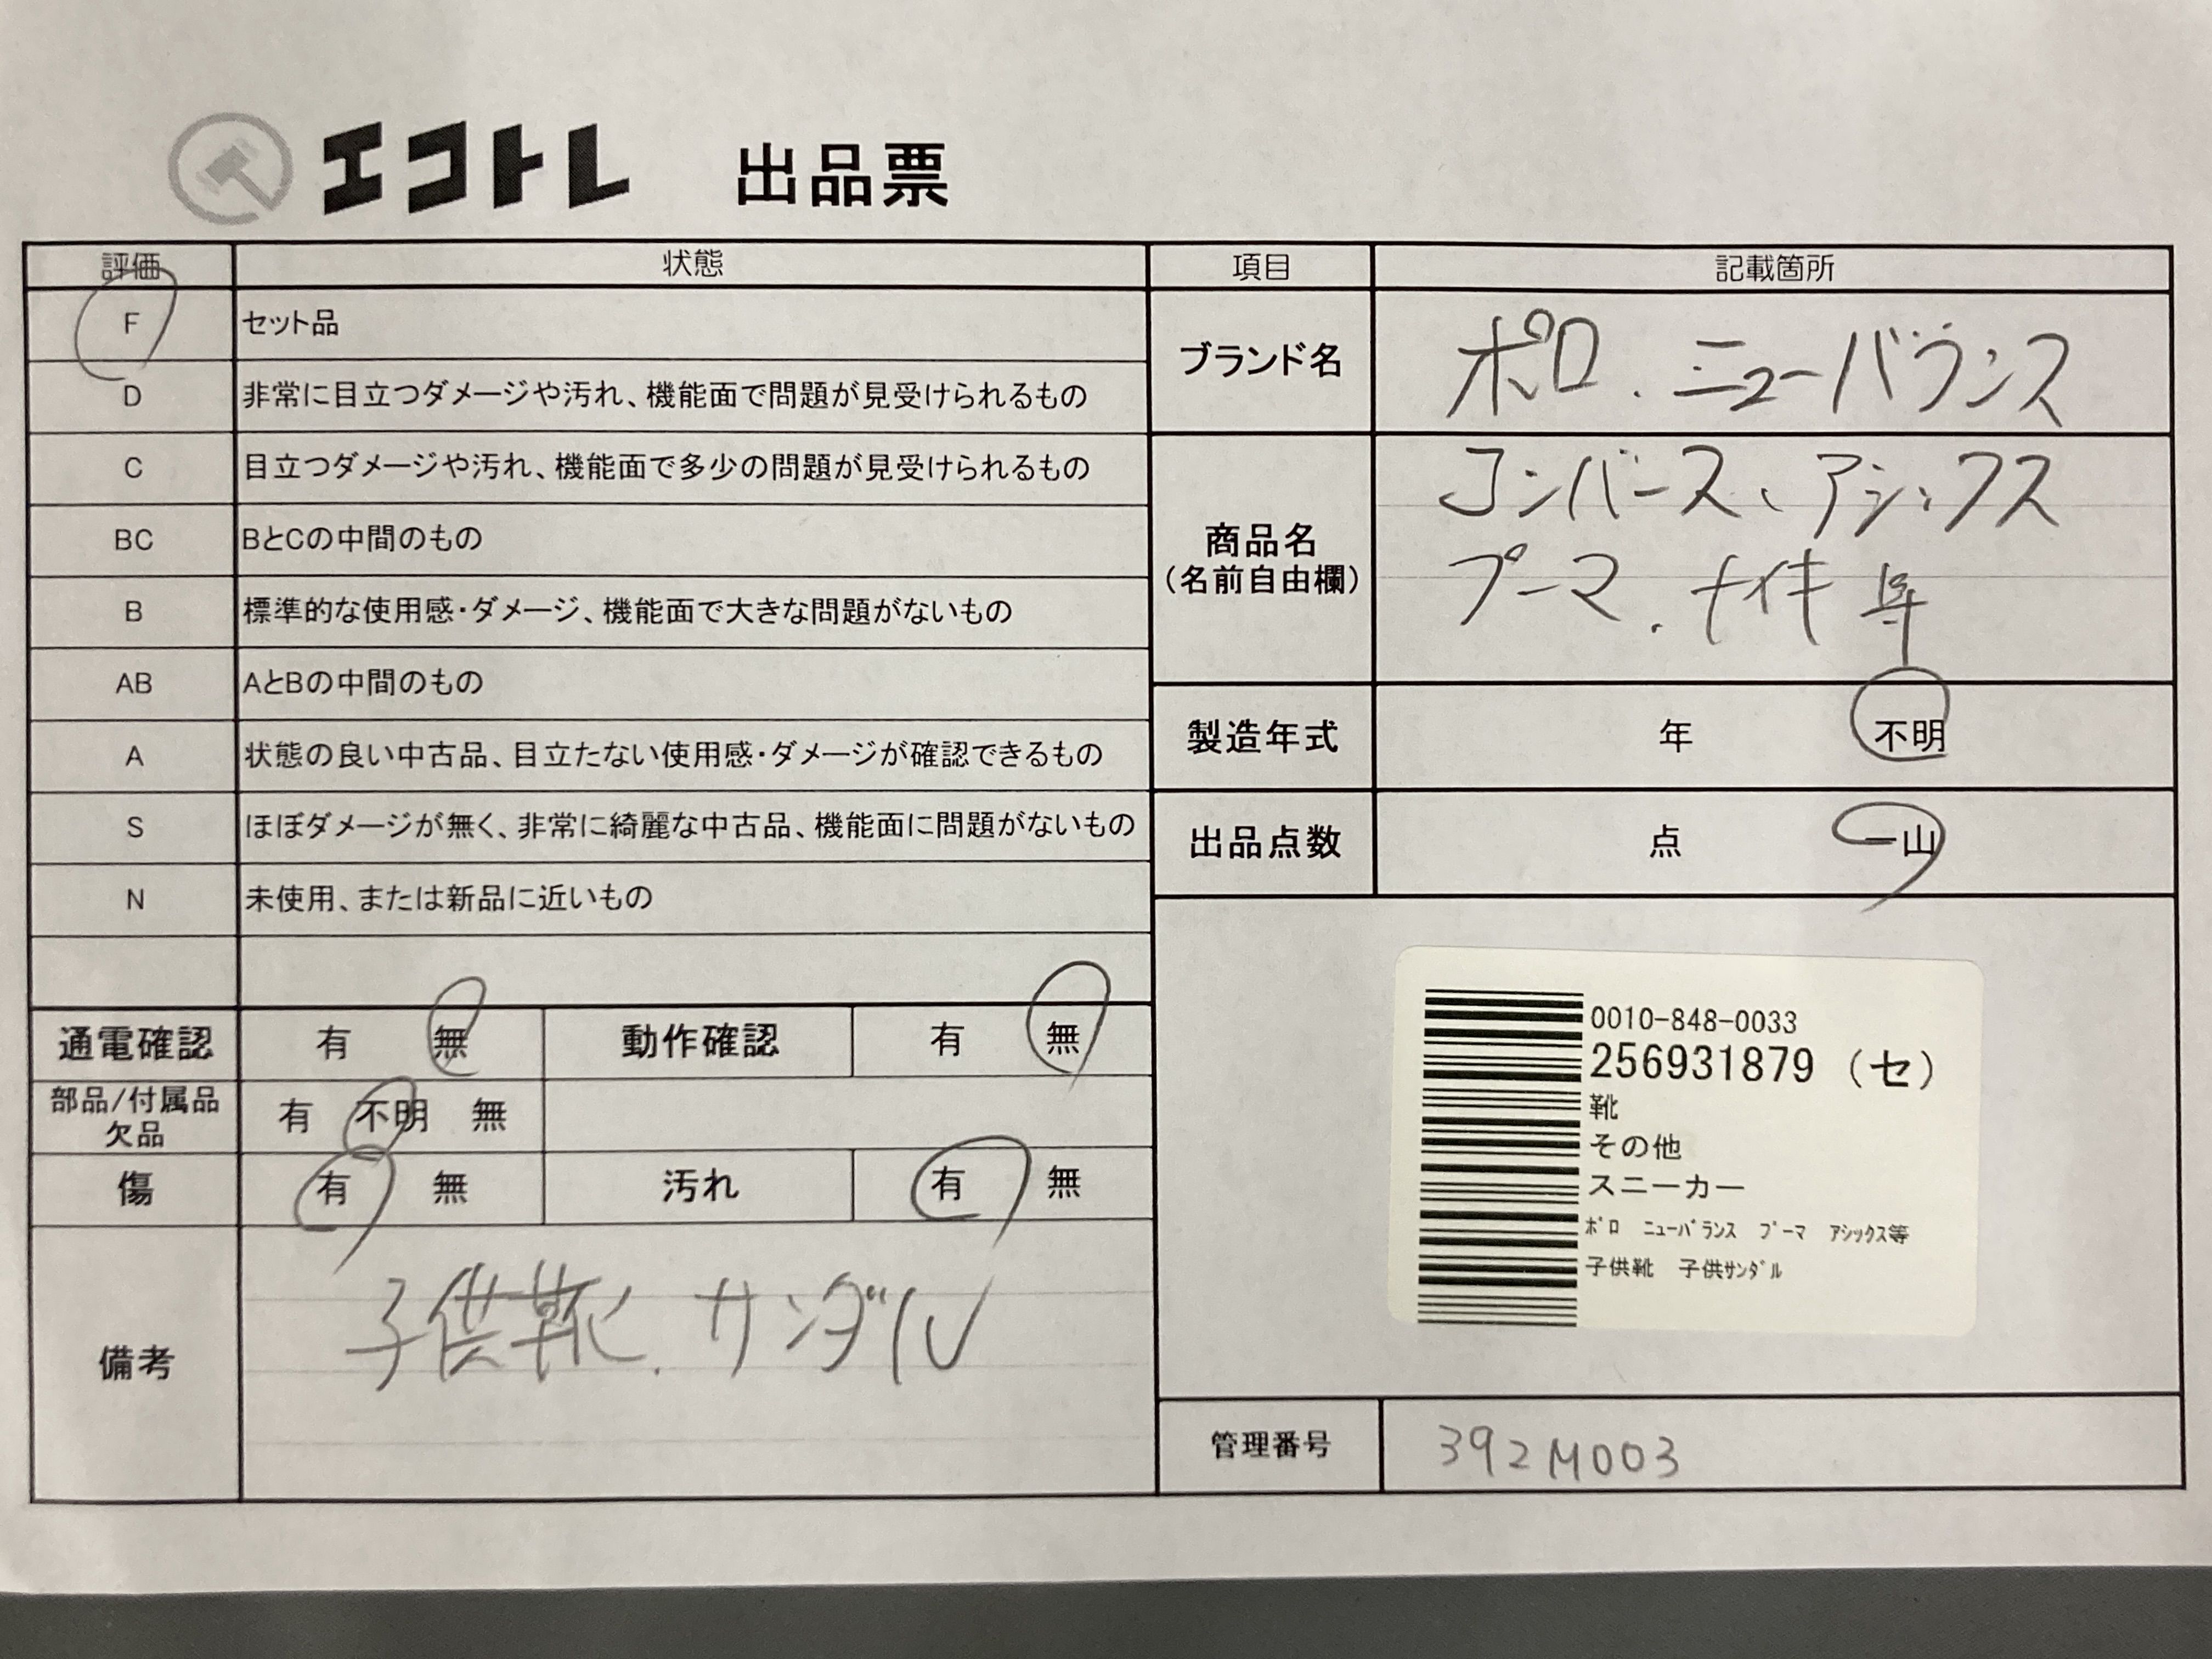 エコトレ 出品票
評価 状態 項目 記載箇所
F セット品
D 非常に目立つダメージや汚れ、機能面で問題が見受けられるもの
C 目立つダメージや汚れ、機能面で多少の問題が見受けられるもの
BC BとCの中間のもの
B 標準的な使用感・ダメージ、機能面で大きな問題がないもの
AB AとBの中間のもの
A 状態の良い中古品、目立たない使用感・ダメージが確認できるもの
S ほぼダメージが無く、非常に綺麗な中古品、機能面に問題がないもの
N 未使用、または新品に近いもの
通電確認 有 無 動作確認 有 無
部品/付属品
欠品
有 不明 無
傷 有 無 汚れ 有 無
備考
子供靴.サンダル
ブランド名
ポロ.ニューバランス
商品名
(名前自由欄)
コンバース、アシックス
プーマ.ナイキ等
製造年式 年 不明
出品点数 点 一山
0010-848-0033
256931879 (セ)
靴
その他
スニーカー
ﾎﾟﾛ ﾆｭｰﾊﾞﾗﾝｽ ﾌﾟｰﾏ ｱｼｯｸｽ等
子供靴 子供ｻﾝﾀﾞﾙ
管理番号 392M003